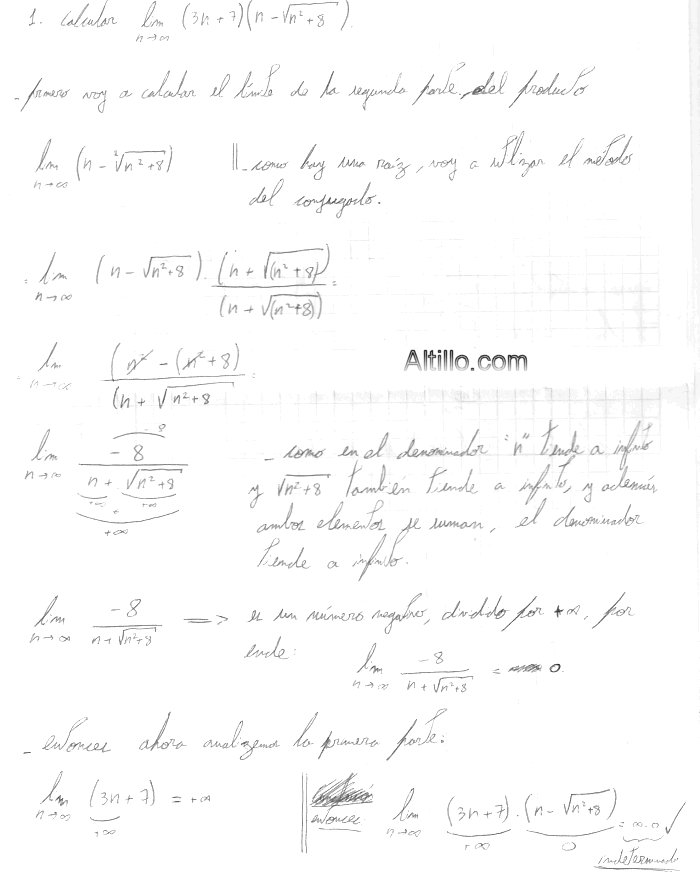 1. Calcular lim n→∞ (3n+7)(n-√n²+8).
- primero voy a calcular el límite de la segunda parte, del producto
lim n→∞ (n-²√n²+8) || - como hay una raíz, voy a utilizar el método
del conjugado.
= lim n→∞ (n-√n²+8) . (n+√(n²+8)) / (n+√(n²+8)) =
= lim n→∞ (n² - (n²+8) / (n+√n²+8 =
Altillo.com
-8
lim n→∞ -8 / n + √n²+8 - como en el denominador "n" tiende a infinito
+∞ + +∞ y √n²+8 también tiende a infinito, y además
+∞ ambos elementos se suman, el denominador
tiende a infinito.
lim n→∞ -8 / n+√n²+8 => es un número negativo, dividido por +∞, por
ende: lim n→∞ -8 / n+√n²+8 = 0.
- entonces ahora analizemos la primera parte:
lim n→∞ (3n+7) = +∞ || entonces: lim n→∞ (3n+7) . (n-√n²+8) = ∞.0 ✓
+∞ +∞ 0 indeterminado